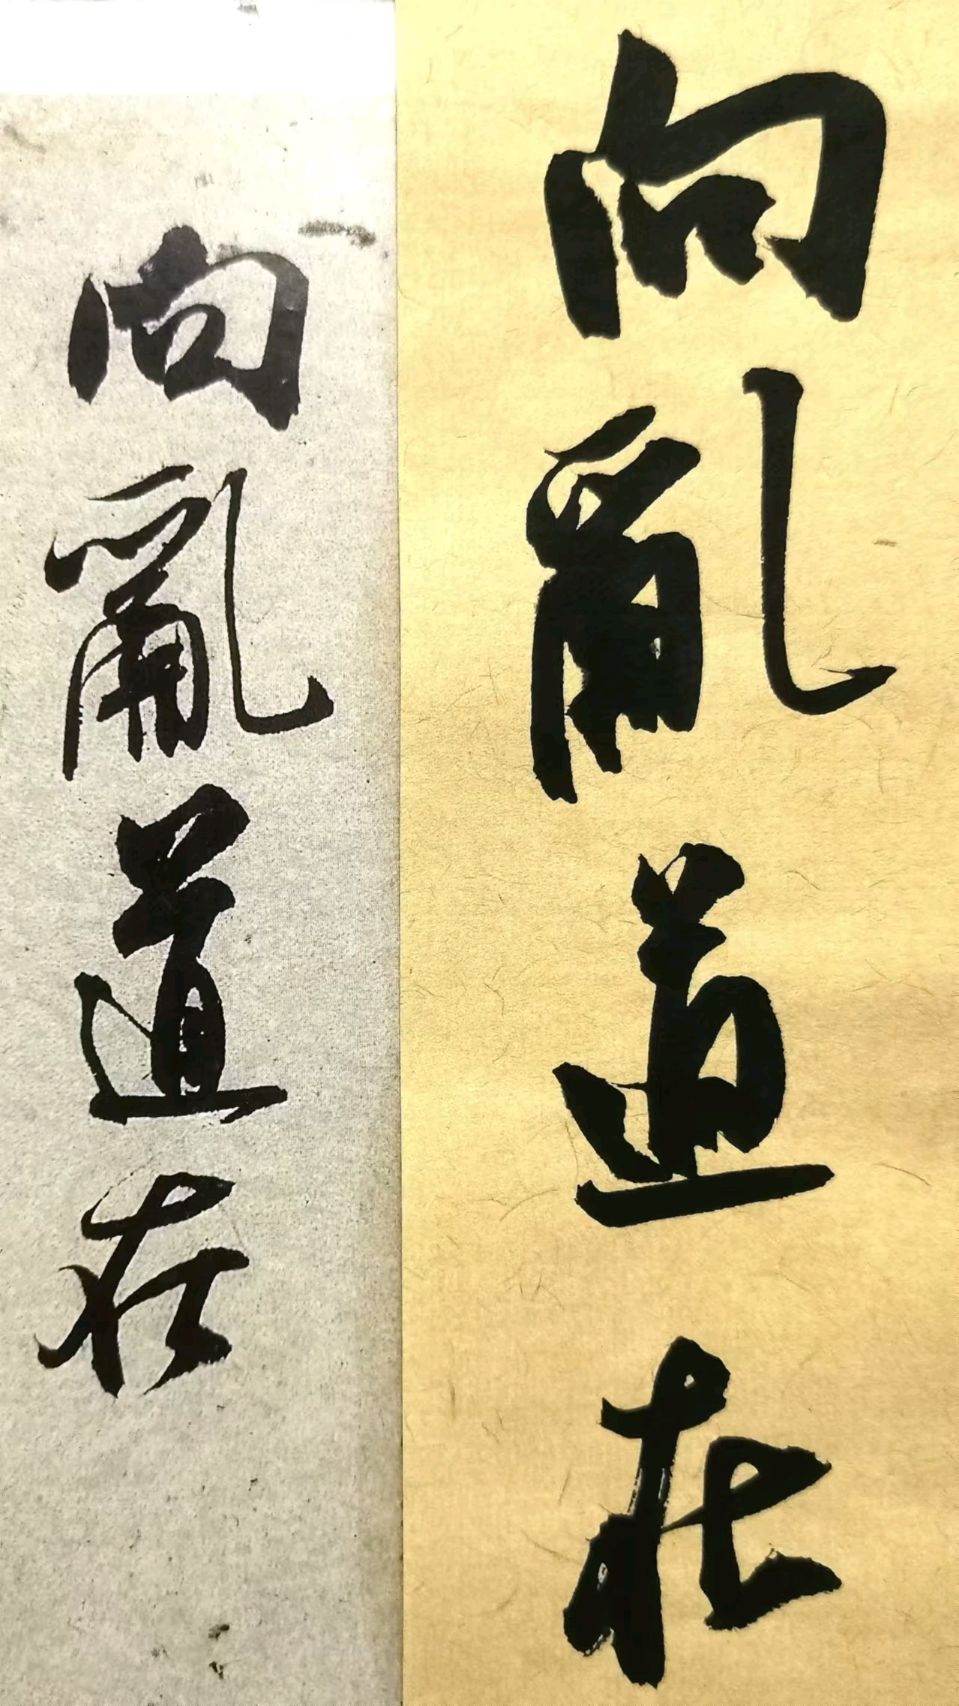 向亂道在
向亂道在